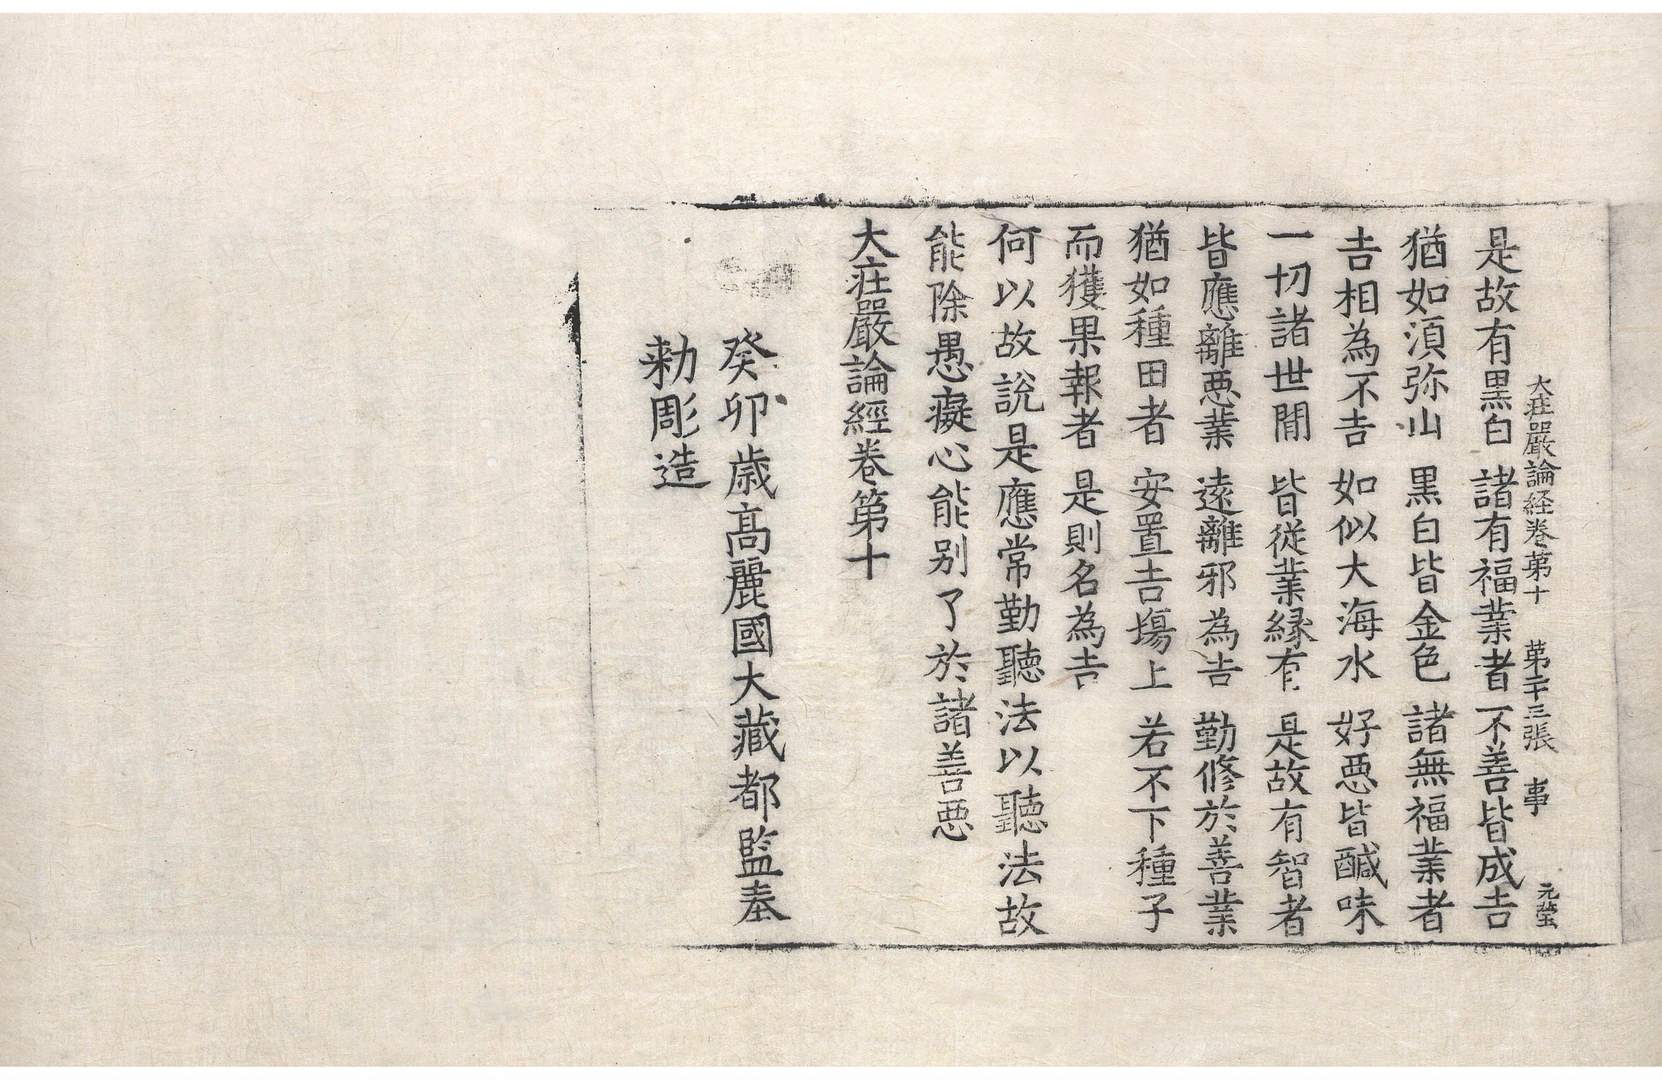 大莊嚴論経卷第十 第二十三張 事 元瑩
是故有黒白 諸有福業者 不善皆成吉
猶如湏弥山 黒白皆金色 諸無福業者
吉相為不吉 如似大海水 好悪皆醎味
一切諸世間 皆従業縁有 是故有智者
皆應離悪業 遠離邪為吉 勤修於善業
猶如種田者 安置吉塲上 若不下種子
而獲果報者 是則名為吉
何以故說是應常勤聽法以聽法故
能除愚癡心能别了於諸善悪
大莊嚴論經卷第十
癸卯歳髙麗國大藏都監奉
勅彫造